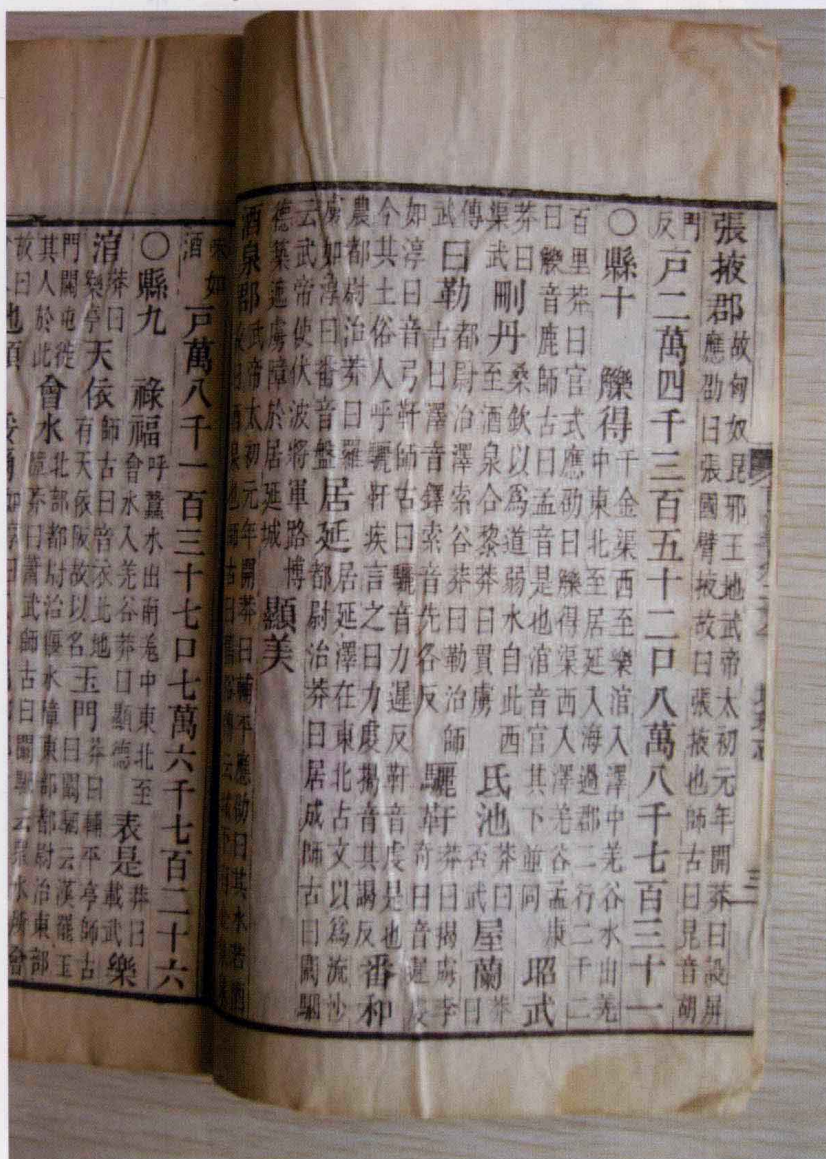 張掖郡 故匈奴昆邪王地武帝太初元年開莽曰設屏
應劭曰張國臂掖故曰張掖也師古曰昆音胡
門
反 戶二萬四千三百五十二口八萬八千七百三十一
〇縣十 觻得 千金渠西至樂涫入澤中羌谷水出羌
中東北至居延入海過郡二行二千二
百里莽曰官式應劭曰觻得渠西入澤羌谷孟康
曰觻音鹿師古曰孟音是也涫音官其下並同 昭武
莽曰
渠武 刪丹 桑欽以爲道弱水自此西
至酒泉合黎莽曰貫虜 氐池 莽曰
否武 屋蘭 莽
曰
傳
武 日勒 都尉治澤索谷莽曰勒治師
古曰澤音鐸索音先各反 驪靬 莽曰揭虜李
奇曰音遲虔
如淳曰音弓靬師古曰驪音力遲反靬音虔是也
今其土俗人呼驪靬疾言之曰力虔揭音其謁反 番和
農都尉治莽曰羅
虜如淳曰番音盤 居延 居延澤在東北古文以爲流沙
都尉治莽曰居成師古曰闞駰
云武帝使伏波將軍路博
德築遮虜障於居延城 顯美
酒泉郡 武帝太初元年開莽曰輔平應劭曰其水若酒
味如
酒 戶萬八千一百三十七口七萬六千七百二十六
〇縣九 祿福 呼蠶水出南羌中東北至
會水入羌谷莽曰顯德 表是 莽曰
載武 樂
涫 莽曰
樂亭 天依 師古曰音衣此地
有天依阪故以名 玉門 莽曰輔平亭師古
曰闞駰云漢罷玉
門關屯徙
其人於此 會水 北部都尉治偃水障東部都尉治東部
障莽曰蕭武師古曰闞駰云衆水所會
故曰